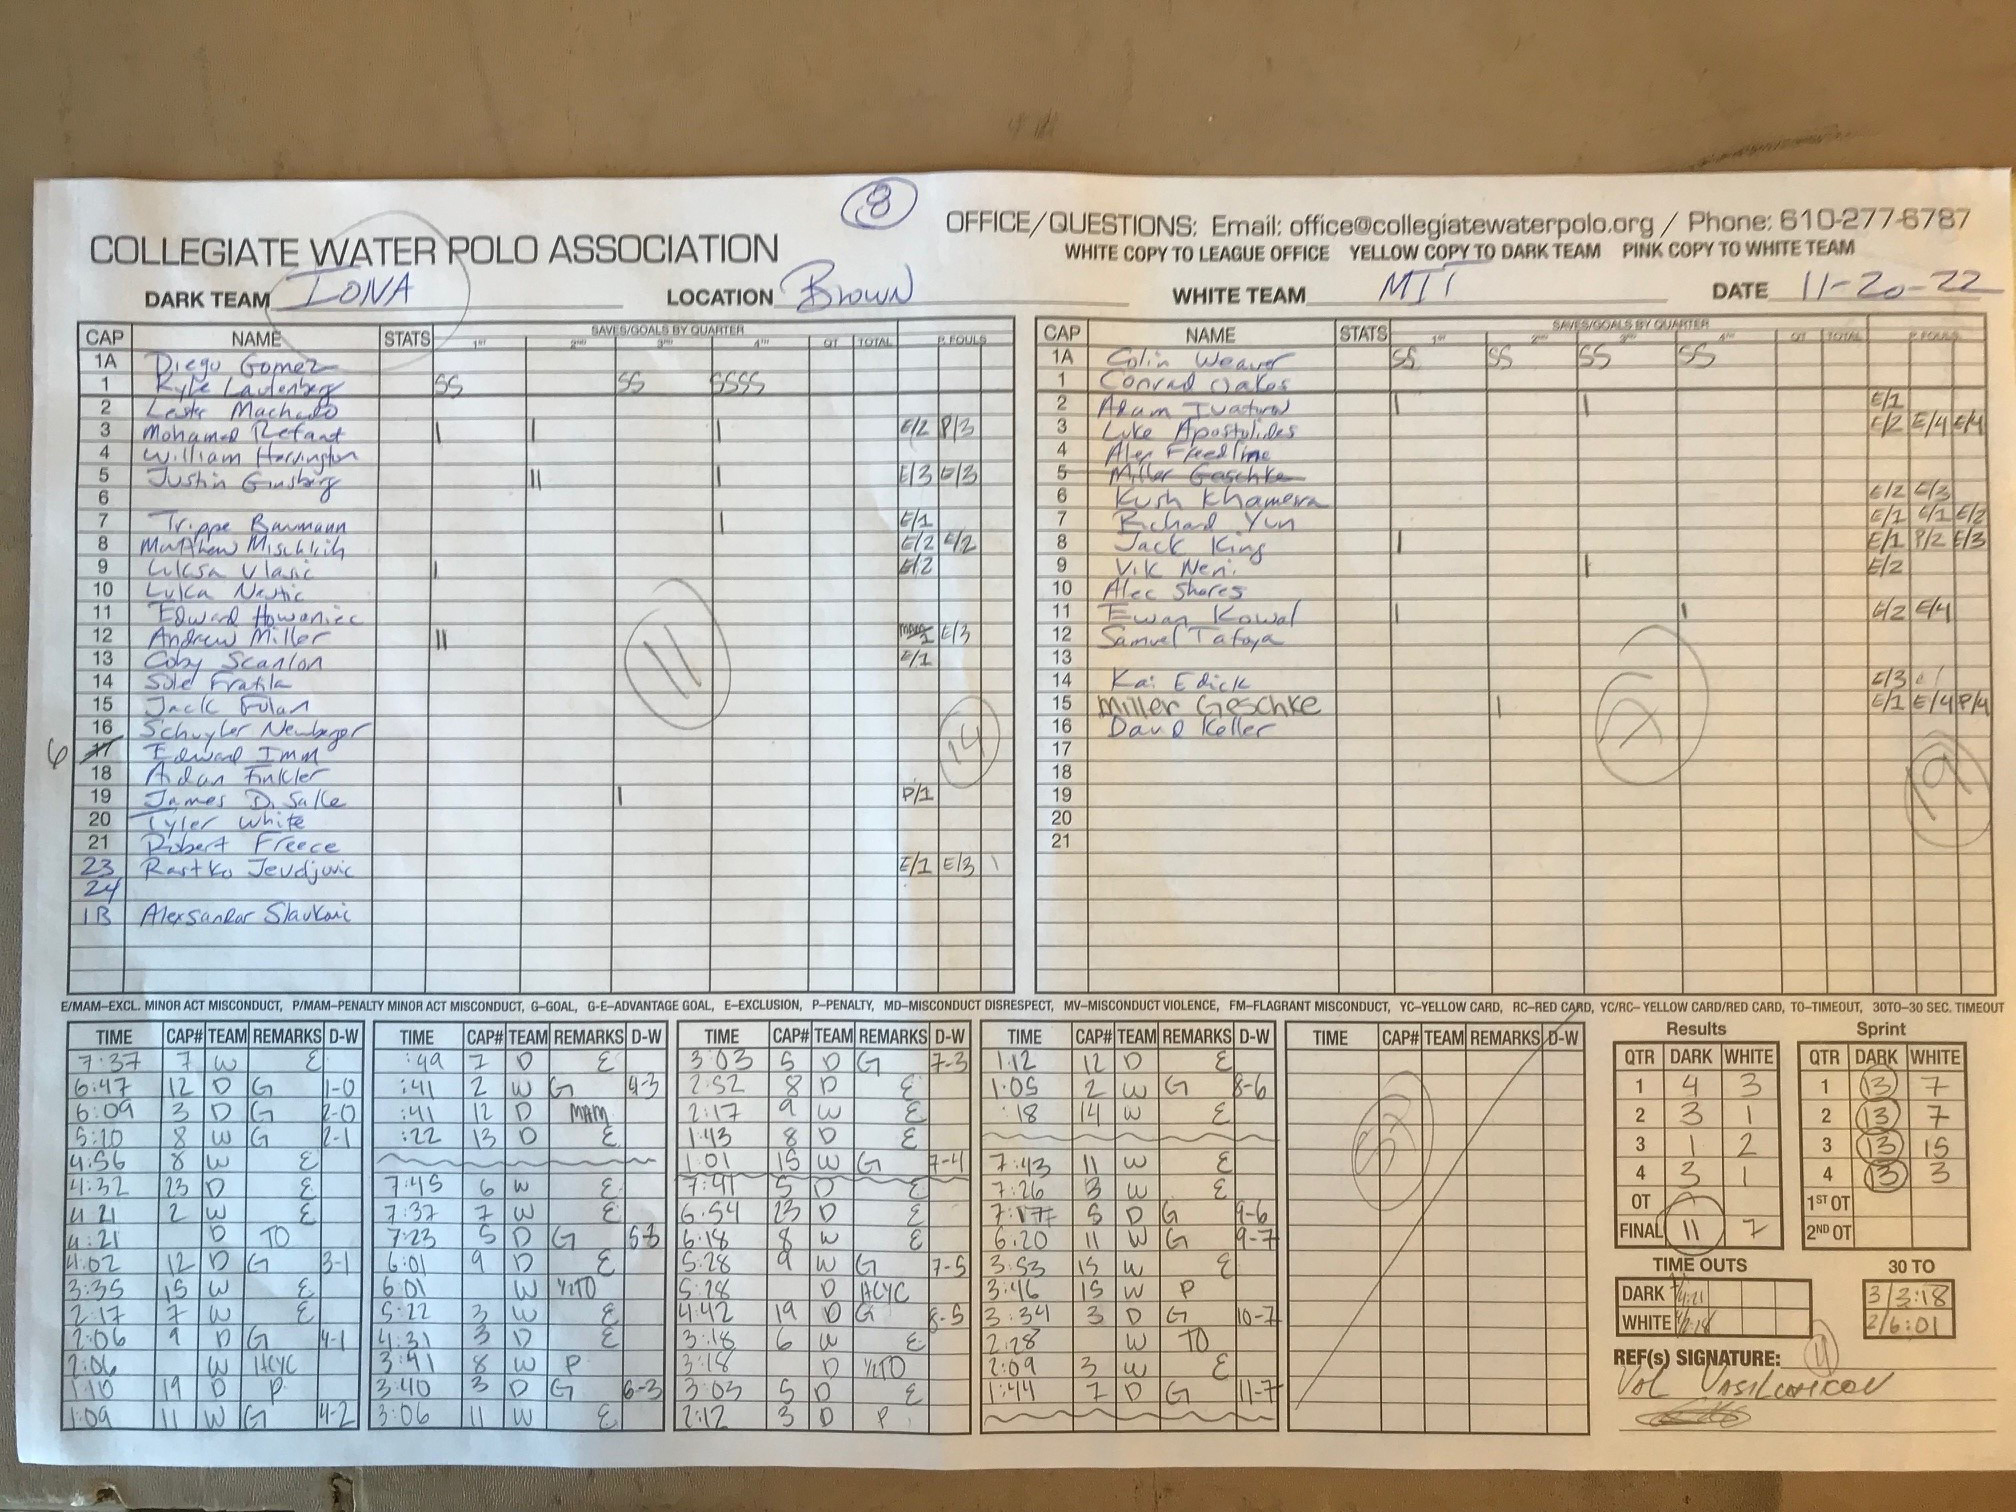 8
OFFICE/QUESTIONS: Email: office@collegiatewaterpolo.org / Phone: 610-277-6787
COLLEGIATE WATER POLO ASSOCIATION
WHITE COPY TO LEAGUE OFFICE YELLOW COPY TO DARK TEAM PINK COPY TO WHITE TEAM
DARK TEAM IONA LOCATION Brown WHITE TEAM MIT DATE 11-20-22
CAP NAME STATS SAVES/GOALS BY QUARTER 1ST 2ND 3RD 4TH OT TOTAL P. FOULS
1A Diego Gomez
1 Kyle Lautenberg SS SS SSSS
2 Lester Machado
3 Mohamed Refaat | | | E/2 P/3
4 William Harrington
5 Justin Ginsberg || | E/3 E/3
6
7 Trippe Baumann | E/1
8 Matthew Mischlich E/2 E/2
9 Luksa Vlasic | E/2
10 Luka Nestic
11 Edward Howaniec
12 Andrew Miller || E/3
13 Coby Scanlon E/1
14 Sole Fratila
15 Jack Fulan
16 Schuyler Newberger
6 17 Edward Imm
18 Aidan Finkler
19 James DiSalle | P/1
20 Tyler White
21 Robert Freece
23 Rastko Jevdjovic E/1 E/3
24
1B Alexsandar Slavkovic
11
14
CAP NAME STATS SAVES/GOALS BY QUARTER 1ST 2ND 3RD 4TH OT TOTAL P. FOULS
1A Colin Weaver SS SS SS SS
1 Conrad Oakes
2 Adam | | E/1
3 Luke Apostolides E/2 E/4 E/4
4 Alex Freedline
5 Miller Geschke
6 Kush Khamesra E/2 E/3
7 Richard Yun E/1 E/1 E/2
8 Jack King | E/1 P/2 E/3
9 Vik Neri | E/2
10 Alec Shores
11 Ewan Kowal | | E/2 E/4
12 Samuel Tafoya
13
14 Kai Edick E/3
15 Miller Geschke | E/1 E/4 P/4
16 David Keller
17
18
19
20
21
7
19
E/MAM–EXCL. MINOR ACT MISCONDUCT, P/MAM–PENALTY MINOR ACT MISCONDUCT, G–GOAL, G-E–ADVANTAGE GOAL, E–EXCLUSION, P–PENALTY, MD–MISCONDUCT DISRESPECT, MV–MISCONDUCT VIOLENCE, FM–FLAGRANT MISCONDUCT, YC–YELLOW CARD, RC–RED CARD, YC/RC–YELLOW CARD/RED CARD, TO–TIMEOUT, 30TO–30 SEC. TIMEOUT
TIME CAP# TEAM REMARKS D-W
7:37 7 W E
6:47 12 D G 1-0
6:09 3 D G 2-0
5:20 8 W G 2-1
4:56 8 W E
4:32 23 D E
4:21 2 W E
4:21 D TO
4:02 12 D G 3-1
3:35 15 W E
2:17 7 W E
2:06 9 D G 4-1
2:06 W HCYC
1:10 19 D P
1:09 11 W G 4-2
TIME CAP# TEAM REMARKS D-W
:49 7 D E
:41 2 W G 4-3
:41 12 D MAM
:22 13 D E
7:45 6 W E
7:37 7 W E
7:23 5 D G 5-3
6:01 9 D E
6:01 W 1/2TO
5:22 3 W E
4:31 3 D E
3:41 8 W P
3:40 3 D G 6-3
3:06 11 W E
TIME CAP# TEAM REMARKS D-W
3:03 5 D G 7-3
2:52 8 D E
2:17 9 W E
1:43 8 D E
1:01 15 W G 7-4
7:41 5 D E
6:54 23 D E
6:18 8 W E
5:28 9 W G 7-5
5:28 D HCYC
4:42 19 D G 8-5
3:18 6 W E
3:18 D 1/2TO
3:03 5 D E
2:12 3 D P
TIME CAP# TEAM REMARKS D-W
1:12 12 D E
1:05 2 W G 8-6
:18 14 W E
7:43 11 W E
7:26 3 W E
7:17 5 D G 9-6
6:20 11 W G 9-7
3:53 15 W E
3:46 15 W P
3:34 3 D G 10-7
2:28 W TO
2:09 3 W E
1:44 7 D G 11-7
TIME CAP# TEAM REMARKS D-W
Results
QTR DARK WHITE
1 4 3
2 3 1
3 1 2
4 3 1
OT
FINAL 11 7
Sprint
QTR DARK WHITE
1 13 7
2 13 7
3 13 15
4 13 3
1ST OT
2ND OT
TIME OUTS
DARK 1/4:21
WHITE 4/2:28
30 TO
3/3:18
2/6:01
4
REF(s) SIGNATURE: